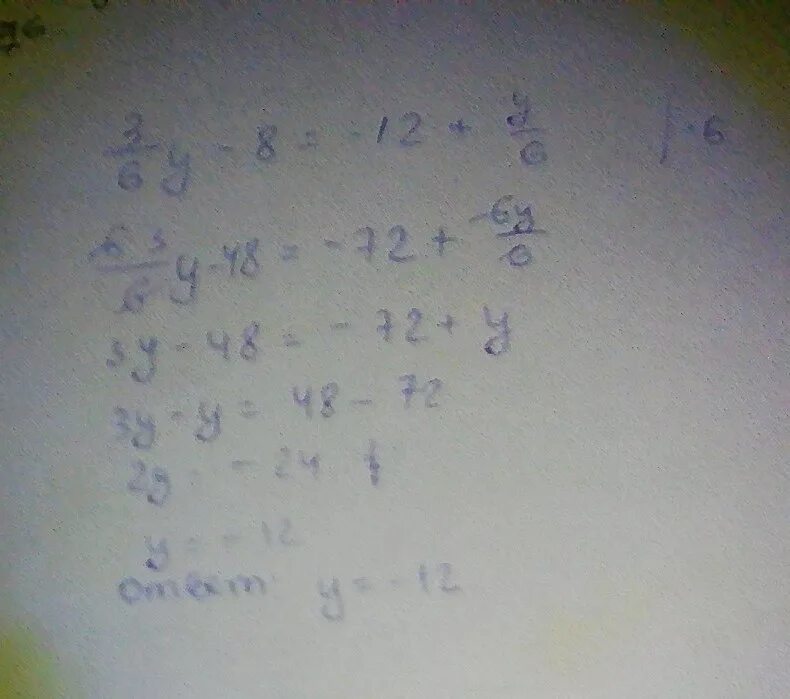 3/6 y - 8 = -12 + y/6 | ·6
6·3/6 y - 48 = -72 + 6y/6
3y - 48 = -72 + y
3y - y = 48 - 72
2y = -24
y = -12
ответ: y = -12